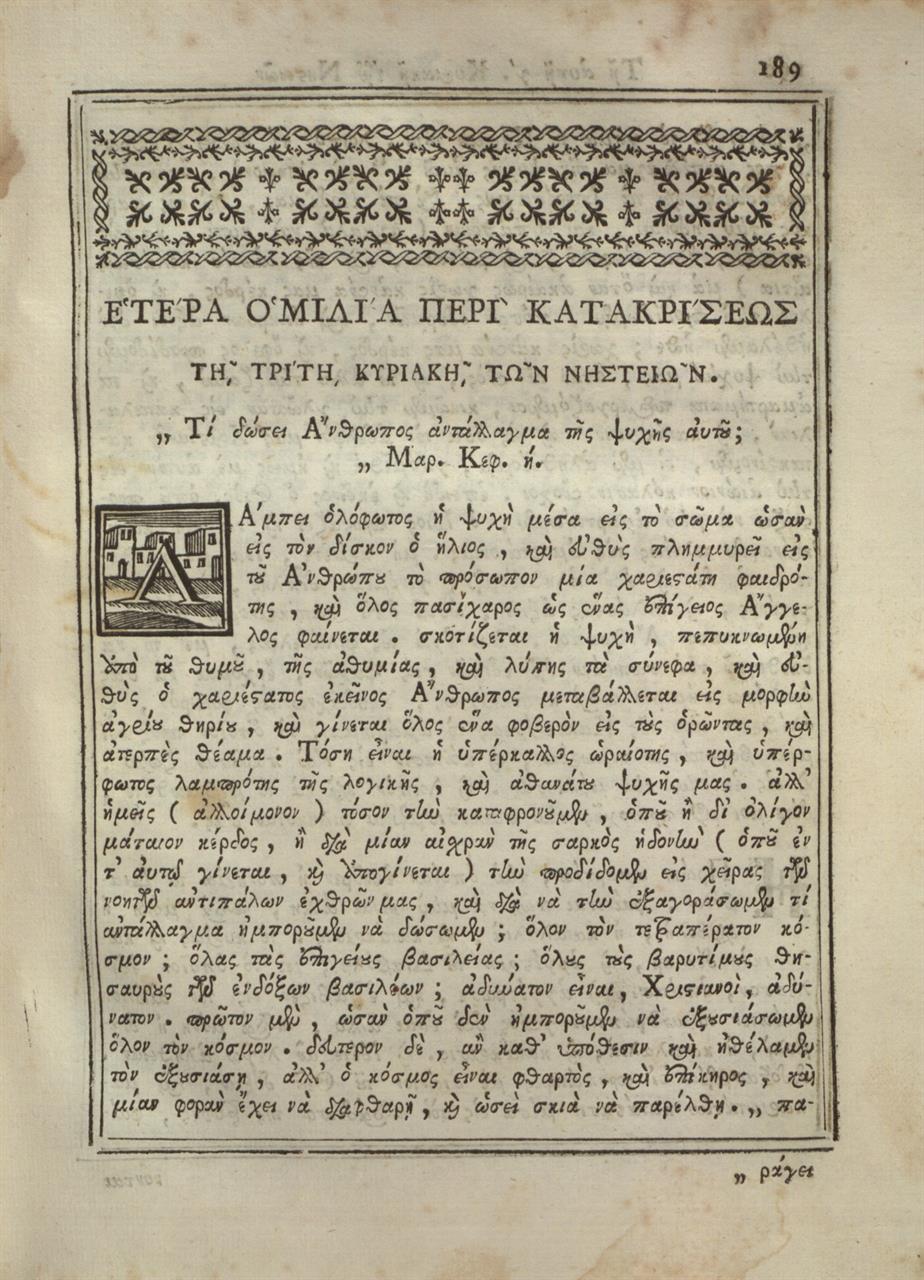 189
ἙΤΈΡΑ ὉΜΙΛΊΑ ΠΕΡῚ ΚΑΤΑΚΡΊΣΕΩΣ
Τῌ͂ ΤΡΊΤῌ ΚΥΡΙΑΚῌ͂ ΤΩ͂Ν ΝΗΣΤΕΙΩ͂Ν.
„ Τί δώσει Ἄνθρωπος ἀντάλλαγμα τῆς ψυχῆς αὐτοῦ;
„ Μαρ. Κεφ. ή.
Λάμπει ὁλόφωτος ἡ ψυχὴ μέσα εἰς τὸ σῶμα ὡσαν
εἰς τὸν δίσκον ὁ ἥλιος, καὶ εὐθὺς πλημμυρεῖ εἰς
τοῦ Ἀνθρώπου τὸ πρόσωπον μία χαριεστάτη φαιδρό-
της, καὶ ὅλος πασίχαρος ὡς ἕνας ἐπίγειος Ἄγγε-
λος φαίνεται. σκοτίζεται ἡ ψυχὴ, πεπυκνωμένη
ὑπὸ τοῦ θυμοῦ, τῆς ἀθυμίας, καὶ λύπης τὰ σύνεφα, καὶ εὐ-
θὺς ὁ χαριέστατος ἐκεῖνος Ἄνθρωπος μεταβάλλεται εἰς μορφὴν
ἀγρίου θηρίου, καὶ γίνεται ὅλος ἕνα φοβερὸν εἰς τοὺς ὁρῶντας, καὶ
ἀτερπὲς θέαμα. Τόση εἶναι ἡ ὑπέρκαλλος ὡραιότης, καὶ ὑπέρ-
φωτος λαμπρότης τῆς λογικῆς, καὶ ἀθανάτου ψυχῆς μας. ἀλλ'
ἡμεῖς ( ἀλλοίμονον ) τόσον τὴν καταφρονοῦμεν, ὁποῦ ἢ δι' ὀλίγον
μάταιον κέρδος, ἢ διὰ μίαν αἰχραν τῆς σαρκὸς ἡδονὴν ( ὁποῦ ἐν
τ' αὐτῷ γίνεται, καὶ ἀπογίνεται ) τὴν προδίδομεν εἰς χεῖρας τῶν
νοητῶν ἀντιπάλων ἐχθρῶν μας, καὶ διὰ νὰ τὴν ἐξαγοράσωμεν τί
ἀντάλλαγμα ἠμποροῦμεν νὰ δώσωμεν; ὅλον τὸν τετραπέρατον κό-
σμον; ὅλας τὰς ἐπιγείους βασιλείας; ὅλους τοὺς βαρυτίμους θη-
σαυροὺς τῶν ἐνδόξων βασιλέων; ἀδύνατον εἶναι, Χριστιανοὶ, ἀδύ-
νατον. πρῶτον μὲν, ὡσὰν ὁποῦ δὲν ἠμποροῦμεν νὰ ἐξουσιάσωμεν
ὅλον τὸν κόσμον. δεύτερον δὲ, ἂν καθ' ὑπόθεσιν καὶ ἠθέλαμεν
τὸν ἐξουσιάση, ἀλλ' ὁ κόσμος εἶναι φθαρτὸς, καὶ ἐπίκηρος, καὶ
μίαν φορὰν ἔχει νὰ διαφθαρῇ, καὶ ὡσεὶ σκιὰ νὰ παρέλθῃ. „ πα-
„ ράγει